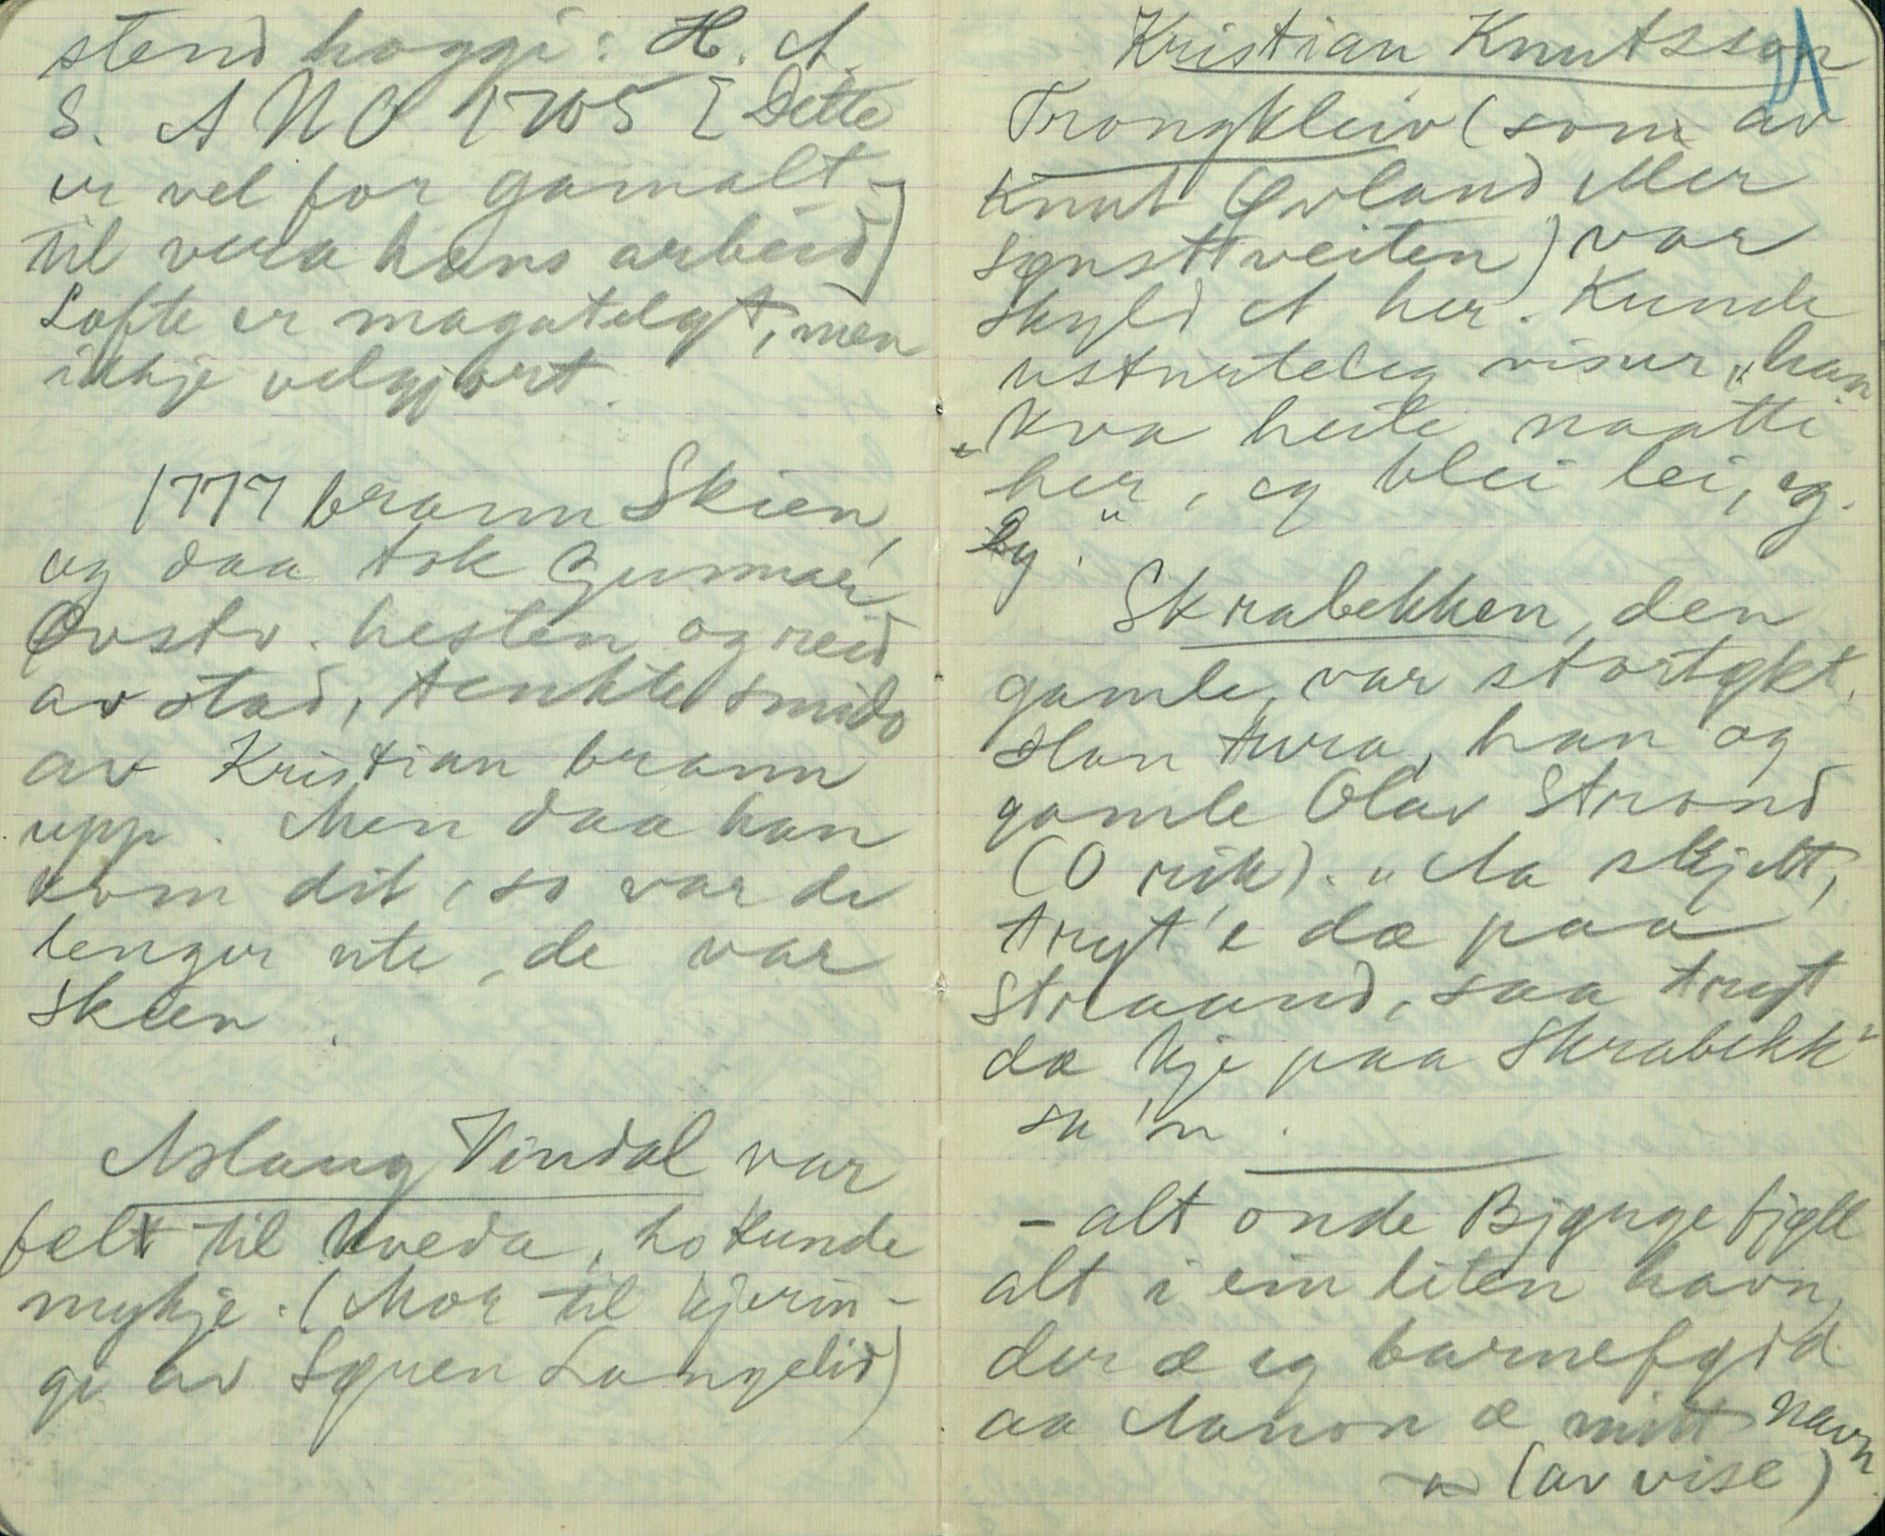 stend hoggi: H. A.
S. ANO 1705 [Dette
er vel for gamalt
til vera hans arbeid]
Lofte er magatelgt, men
ikkje velgjort.
1777 brann Skien,
og daa tok Gunnar
Øvstv. hesten og reid
av stad, tenkte smido
av Kristian brann
upp. Men daa han
kom dit, so var de
lenger ute, de var
Skien.
Aslaug Vindal var
felt til kveda, ho kunde
mykje. (Mor til kjerin-
gi av Søren Langelid)
Kristian Knutsson
Trongkleiv (som av
Knut Øvland eller
Synsttveiten) var
skyld et her. Kunde
ustyrteleg visur, "han
kva heite naatti
her", eg blei lei, eg.
Eg.
Skrabekken, den
gamle, var stortykt.
Han tura, han og
gamle Olav Strond
(O rik). "Aa skjekt,
tryt'e dæ paa
Straand, saa tryt
dæ kje paa Skrabekk
sa'n.
- alt onde Bjønge fjøll
alt i ein liten havn,
der æ eg barnefødd
aa Aanon æ mitt navn
(av vise)